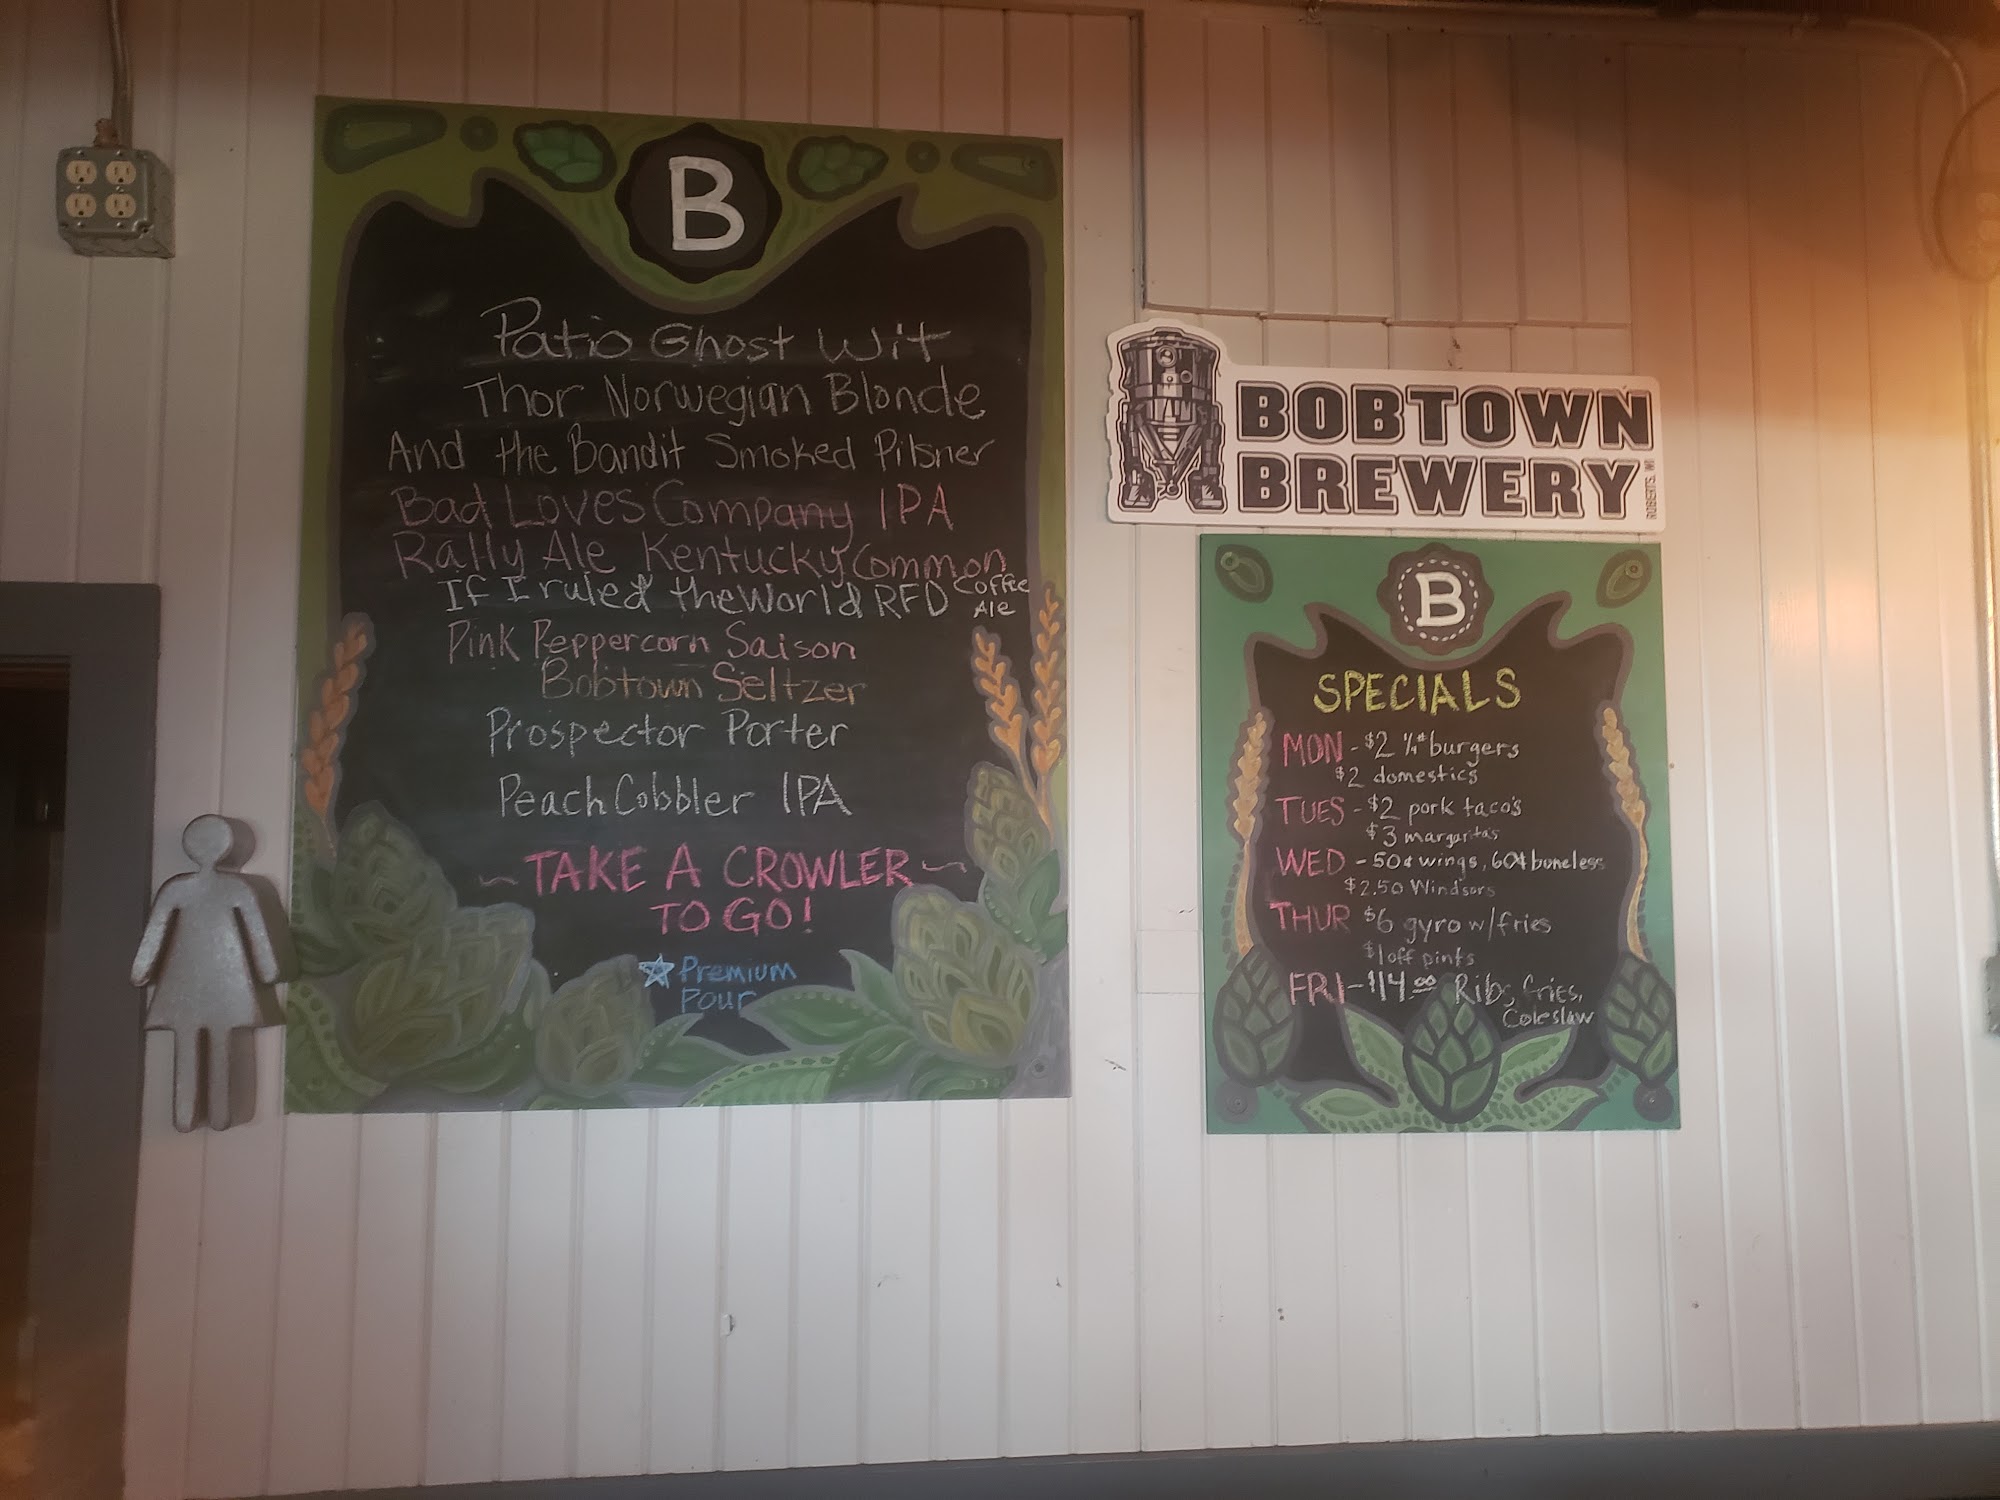 B
Patio Ghost Wit
Thor Norwegian Blonde
And the Bandit Smoked Pilsner
Bad Loves Company IPA
Rally Ale Kentucky Common
If I ruled the World RFD Coffee
Ale
Pink Peppercorn Saison
Bobtown Seltzer
Prospector Porter
Peach Cobbler IPA
~ TAKE A CROWLER ~
TO GO!
☆ Premium
Pour
BOBTOWN
BREWERY
ROBERTS, WI
B
SPECIALS
MON - $2 ¼# burgers
$2 domestics
TUES - $2 pork taco's
$3 margarita's
WED - 50¢ wings, 60¢ boneless
$2.50 Windsors
THUR $6 gyro w/fries
$1 off pints
FRI - $14.00 Ribs, fries,
Coleslaw